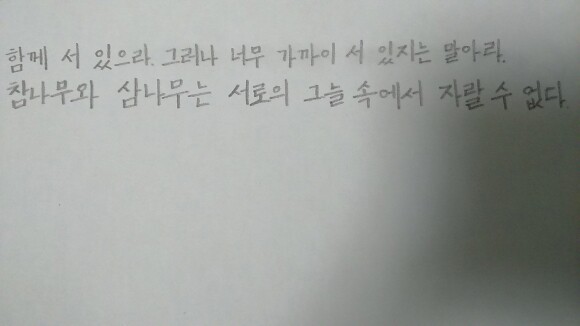 함께 서 있으라. 그러나 너무 가까이 서 있지는 말아라.
참나무와 삼나무는 서로의 그늘 속에서 자랄 수 없다.